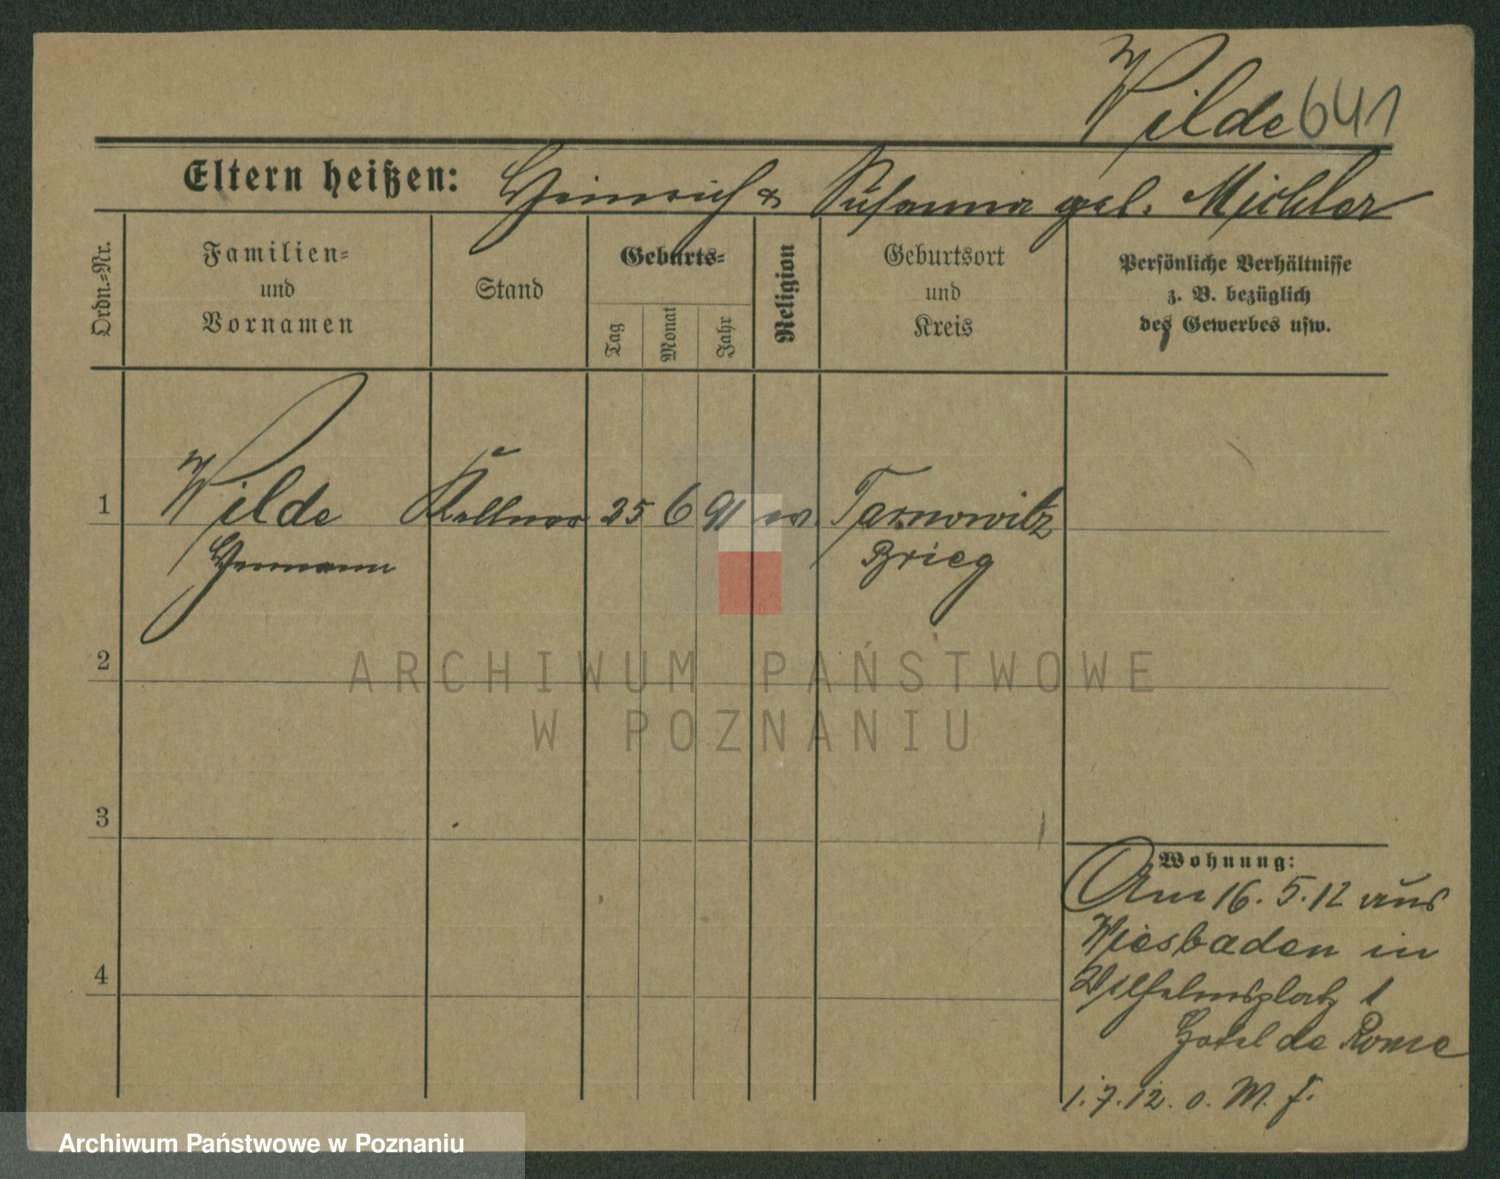 Wilde 641
Eltern heißen: Heinrich & Susanna geb. Michler
Ordn.-Nr.
Familien-
und
Vornamen
Stand
Geburts-
Tag
Monat
Jahr
Religion
Geburtsort
und
Kreis
Persönliche Verhältnisse
z. B. bezüglich
des Gewerbes usw.
1 Wilde Kellner 25 6 91 ev. Tarnowitz
Hermann Brieg
2
3
4
Wohnung:
Am 16. 5. 12 aus
Wiesbaden in
Wilhelmsplatz 1
Hotel de Rome
1. 7. 12. o. M. f.
ARCHIWUM PAŃSTWOWE
W POZNANIU
Archiwum Państwowe w Poznaniu